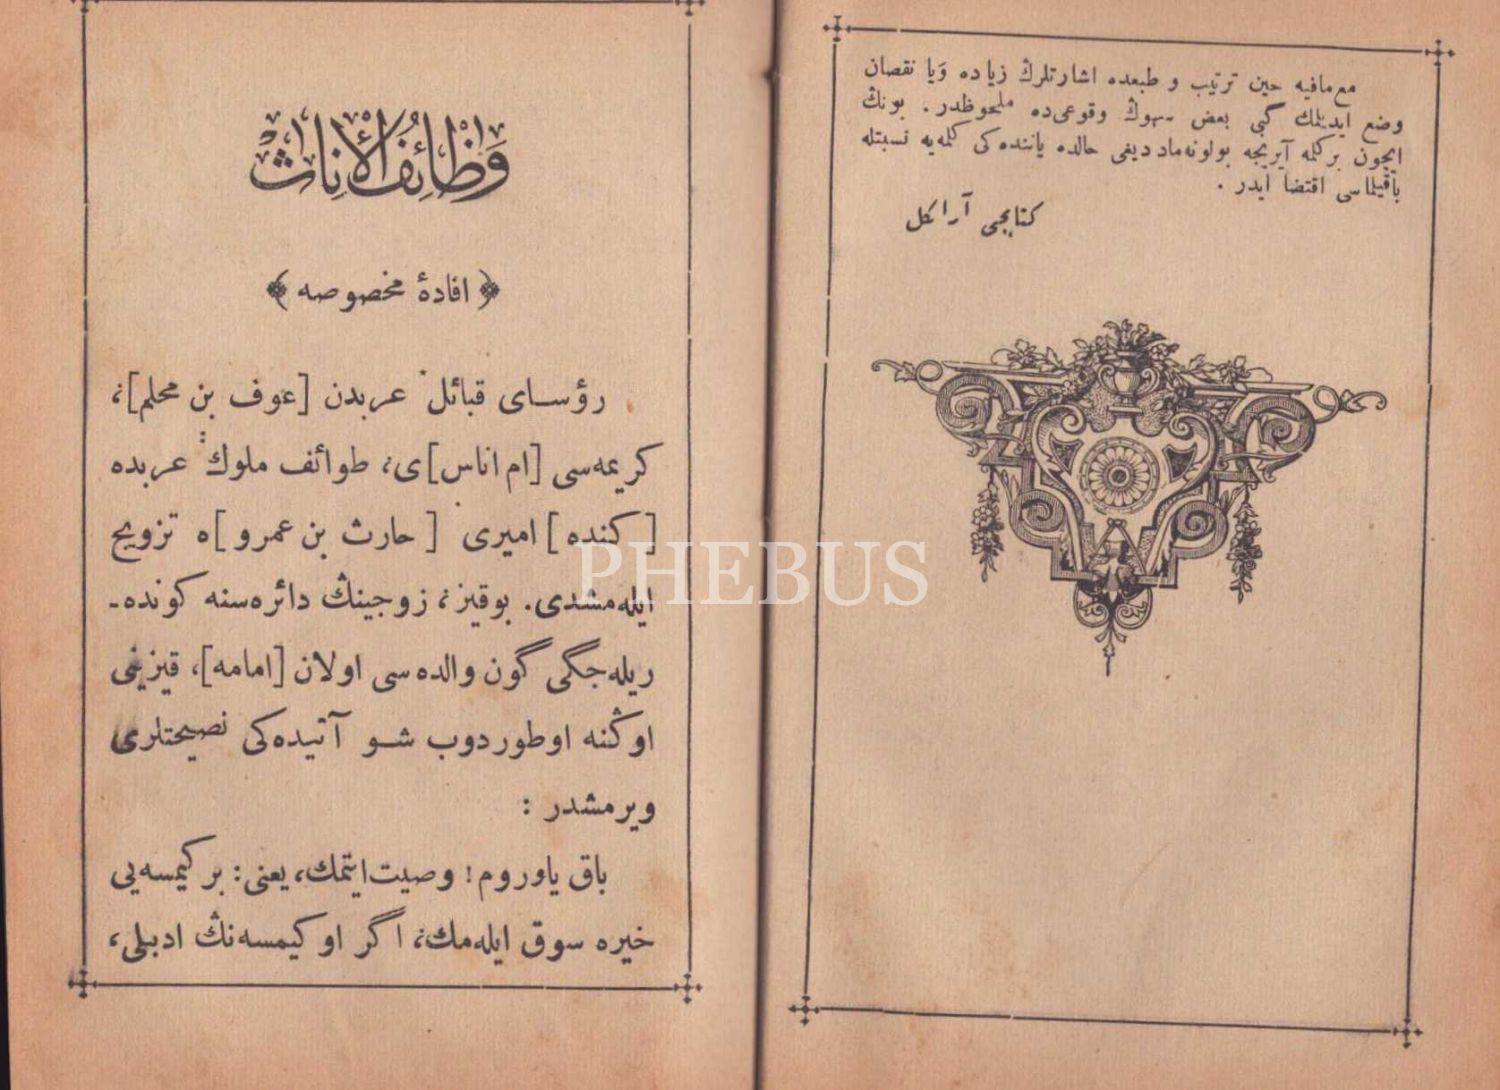 مع‌مافیه حین ترتیب و طبعده اشارتلرڭ زیاده وَیا نقصان
وضع ایدیلمك گبی بعض سهوڭ وقوعی‌ده ملحوظدر. بونڭ
ایچون برکلمه آیریجه بولونه‌مادیغی حالده یاننده‌کی کلمه‌یه نسبتله
باقیلماسی اقتضا ایدر.
کتابجی آراکل
وَظائِفُ الْاِناث
﴿ افادهٔ مخصوصه ﴾
رؤسـای قبائل عربدن [عوف بن محلم]،
کریمه‌سی [ام اناس]ی، طوائف ملوك عربده
[کنده] امیری [حارث بن عمرو]ه تزویج
ایله‌مشدی. بوقیز، زوجینڭ دائره‌سنه کونده-
ریله‌جگی گون والده‌سی اولان [امامه]، قیزینی
اوڭنه اوطوردوب شـو آتیده‌کی نصیحتلری
ویرمشدر :
باق یاوروم! وصیت‌ایتمك، یعنی: برکیمسه‌یی
خیره سوق ایله‌مك، اگر اوکیمسه‌نڭ ادبیلی،
PHEBUS